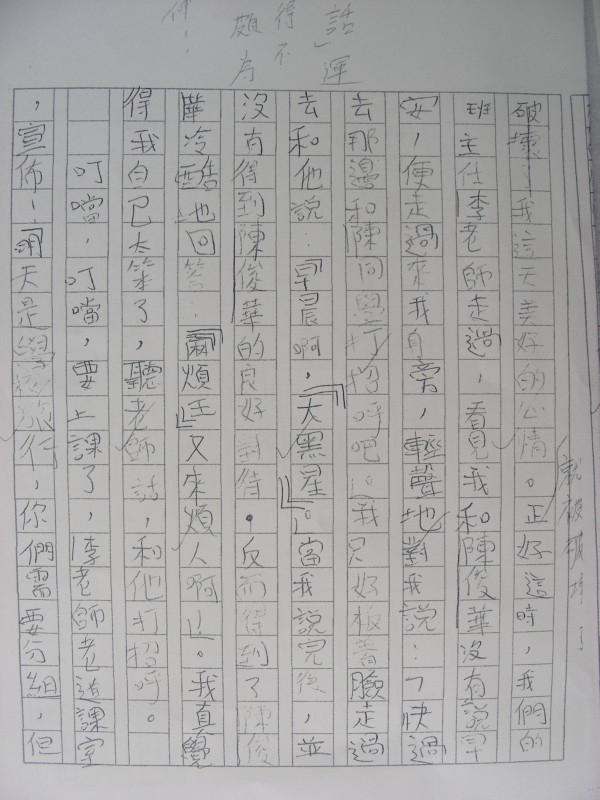 就被破壞了
破壞了我這天美好的心情。正好這時，我們的
班主任李老師走過，看見我和陳俊華沒有說早
安，便走過來我身旁，輕聲地對我說：「快過
去那邊和陳同學打招呼吧」。我只好板着臉走過
去和他說：早晨啊，『大黑星』。」當我說完後，並
沒有得到陳俊華的良好對待。反而得到了陳俊
華冷酷地回答：『麻煩王』又來煩人啊！」。我直覺
得我自己太笨了，聽老師話，和他打招呼。
叮噹，叮噹，要上課了，李老師老課室
，宣佈！明天是學校旅行，你們需要分組，但
話」運
得不